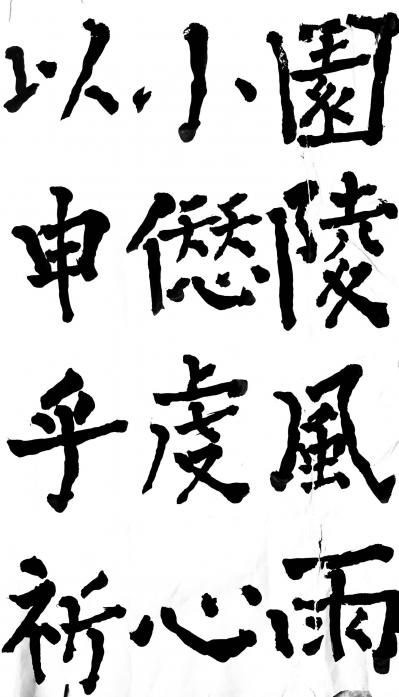 園陵風雨
小愆虔心
以申乎祈